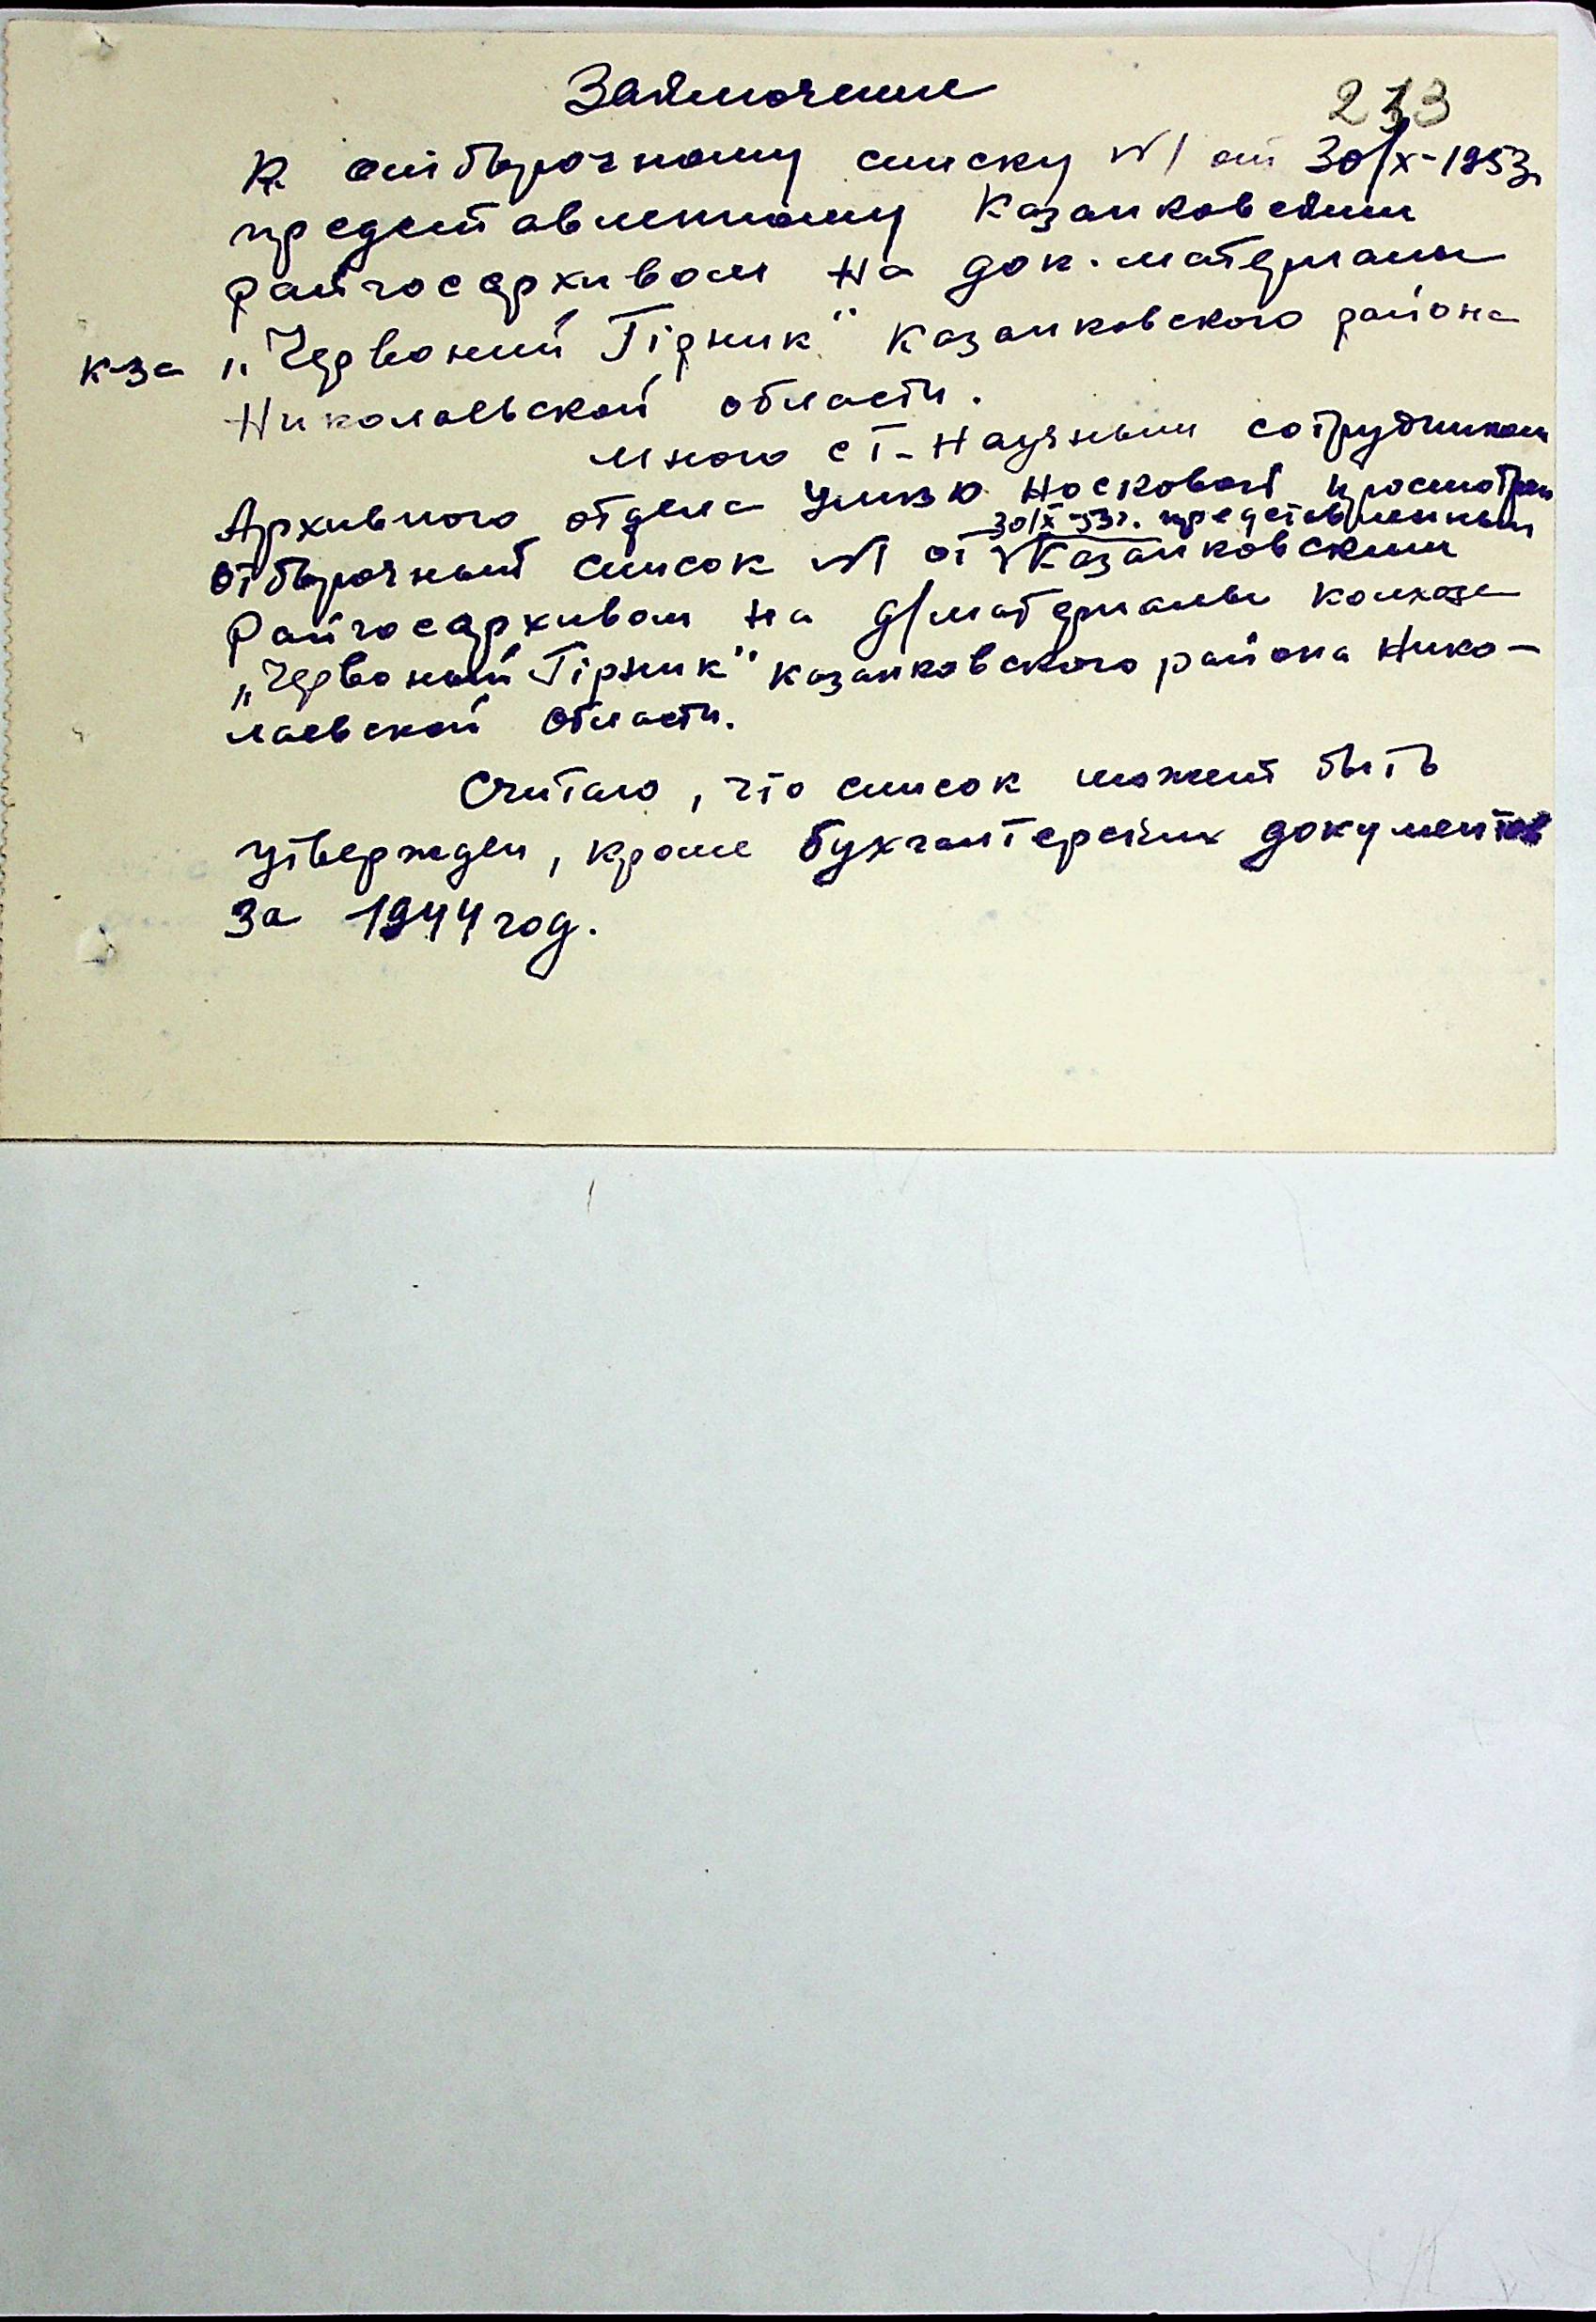 Заключение
213
К отборочному списку №1 от 30/X-1953г
представленному Казанковским
райгосархивом на док. материалы
к-за „Червоний Гірник" Казанковского района
Николаевской области.
Мною ст. научным сотрудником
Архивного отдела УМВЮ Носковой просмотрен
30/X-53г. представленный
отборочный список №1 от Казанковским
Райгосархивом на д/материалы колхоза
„Червоный Гірник" Казанковского района Нико-
лаевской области.
Считаю, что список может быть
утвержден, кроме бухгалтерских документов
за 1944 год.